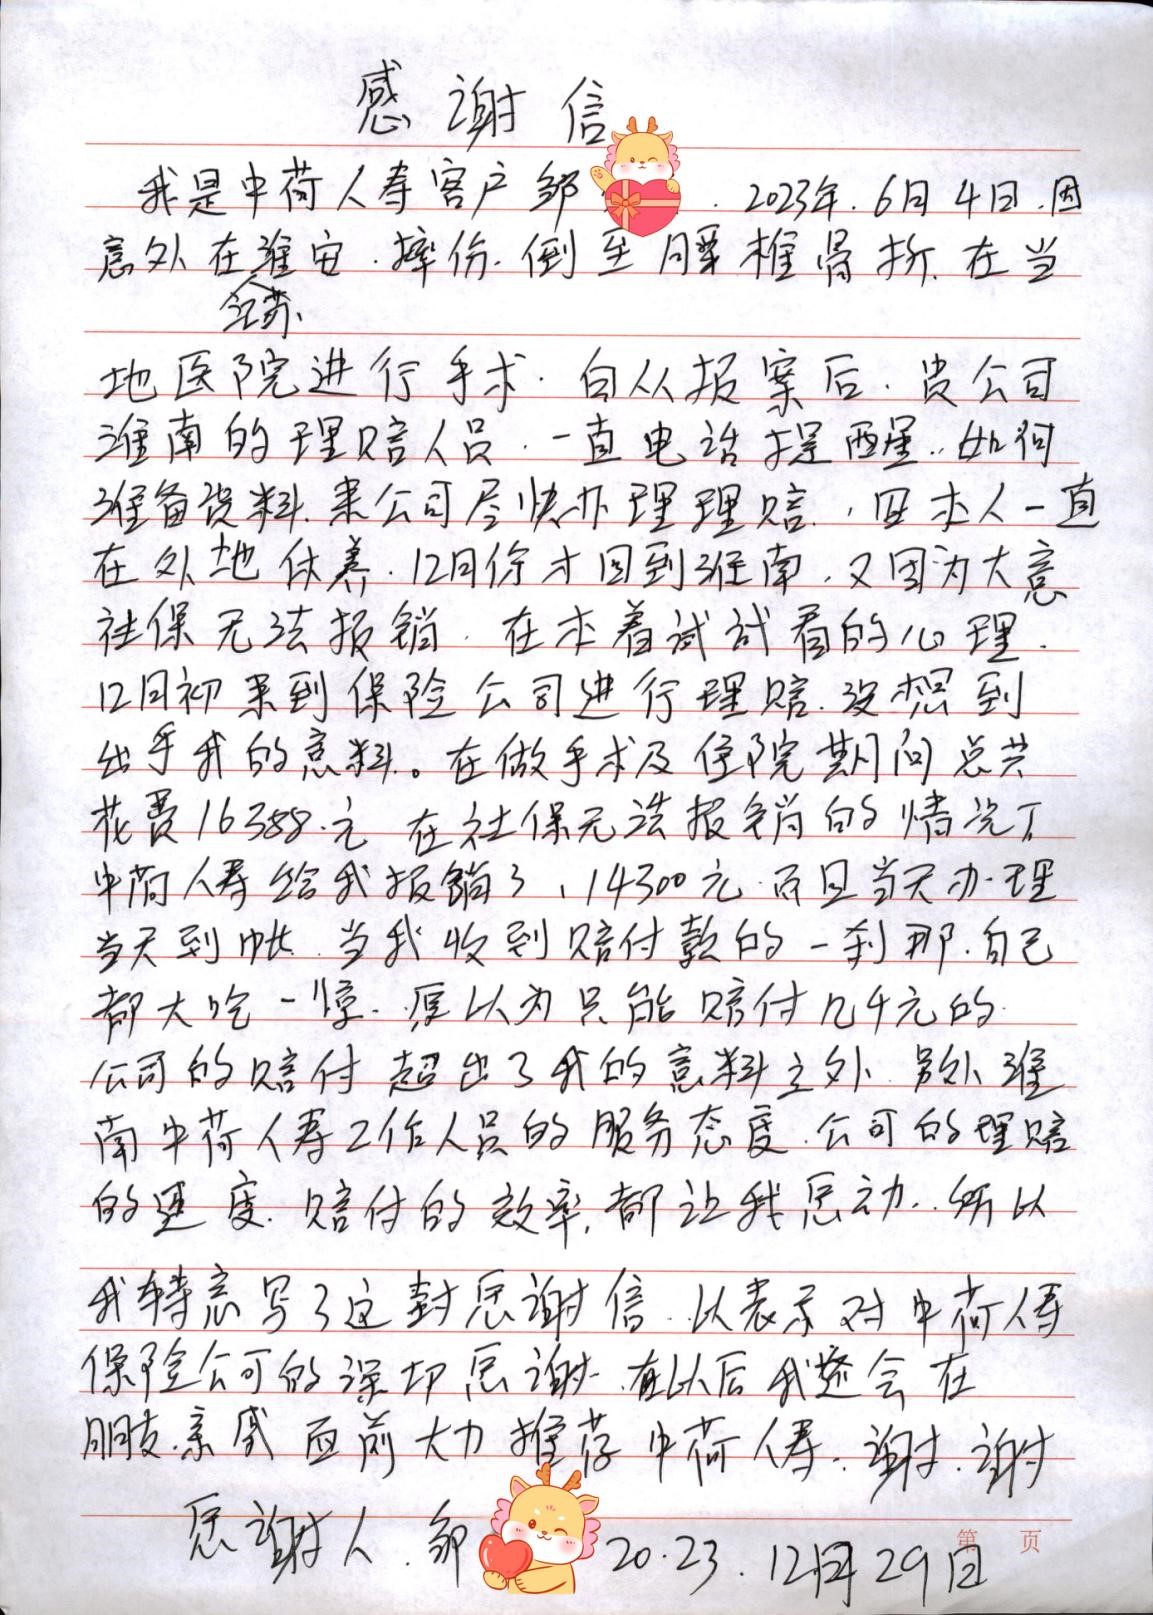 感谢信
我是中荷人寿客户邹 . 2023年.6月4日.因
意外在淮安.摔伤.倒至腰椎骨折.在当
江苏、
地医院进行手术.自从报案后.贵公司
淮南的理赔人员.一直电话提醒..如何
准备资料.来公司尽快办理理赔.,因本人一直
在外地休养.12月份才回到淮南.又因为大意
社保无法报销.在本着试试看的心理.
12月初来到保险公司进行理赔.没想到
出乎我的意料。在做手术及住院期间总共
花费16388.元 在社保无法报销的情况下
中荷人寿给我报销了,14300元.而且当天办理
当天到帐.当我收到赔付款的一刹那.自己
都大吃一惊.原以为只能赔付几千元的.
公司的赔付超出了我的意料之外.另外淮
南中荷人寿工作人员的服务态度.公司的理赔
的速度.赔付的效率,都让我感动..所以
我特意写了这封感谢信..以表示对中荷人寿
保险公司的深切感谢.在以后我还会在
朋友.亲戚面前大力推荐中荷人寿.谢谢.谢谢
感谢人.邹 20.23.12月29日
第 页